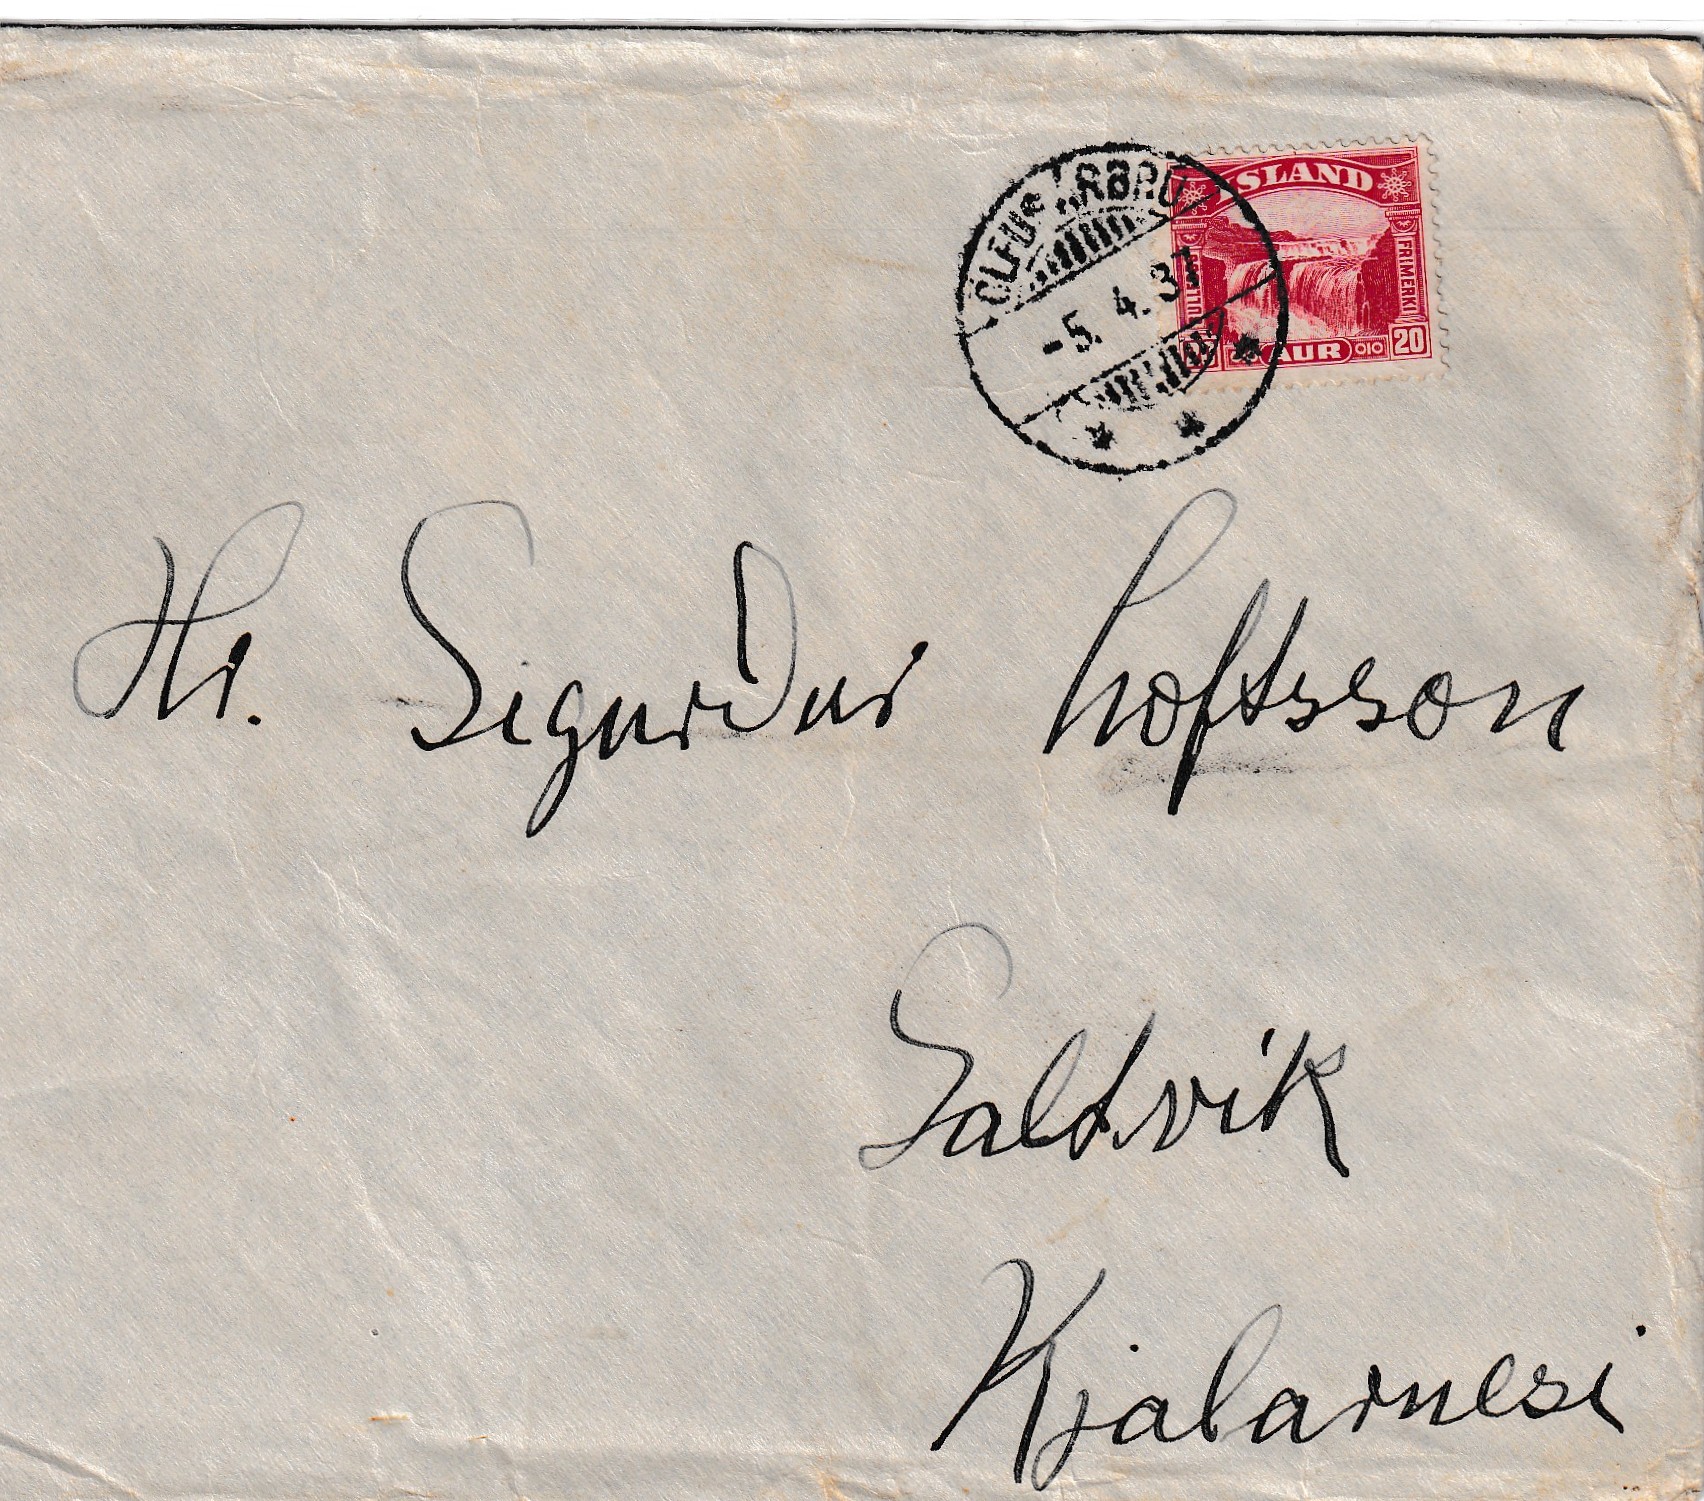 ÖLFUSÁRBRÚ
-5. 4. 37
ÍSLAND
FRIMERKI
AUR 20
Hr. Sigurður Loftsson
Saltvík
Kjalarnesi